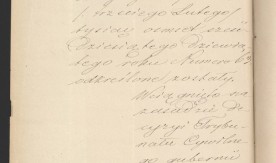 trzeciego Lutego
tysiąc ośmset sześć
dziesiątego dziewią
tego roku Numera 63
odkreślone zostały.
Wciągnięto na
zasadzie De
cyzyi Trybu
nału Cywilne
go gubernii